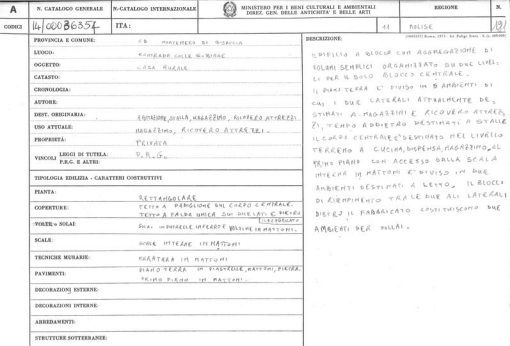 A
N. CATALOGO GENERALE
N. CATALOGO INTERNAZIONALE
MINISTERO PER I BENI CULTURALI E AMBIENTALI
DIREZ. GEN. DELLE ANTICHITÀ E DELLE ARTI
REGIONE
N.
CODICI
14/00036354
ITA:
11
MOLISE
191
PROVINCIA E COMUNE:
CB MONTENERO DI BISACCIA
LUOGO:
CONTRADA COLLE
OGGETTO
CASA RURALE
CATASTO:
CRONOLOGIA:
AUTORE:
DEST. ORIGINARIA:
ABITAZIONE, STALLA, MAGAZZINO, RICOVERO ATTREZZI
USO ATTUALE:
MAGAZZINO, RICOVERO ATTREZZI.
PROPRIETÀ:
PRIVATA
VINCOLI
LEGGI DI TUTELA:
P.R.G. E ALTRI:
P.R.G.
TIPOLOGIA EDILIZIA - CARATTERI COSTRUTTIVI
PIANTA:
RETTANGOLARE
COPERTURE:
TETTO A PADIGLIONE SUL CORPO CENTRALE.
TETTO A FALDA UNICA SUI DUE LATI E DIETRO
IL FABBRICATO
VOLTE o SOLAI:
SOLAI IN PUTRELLE IN FERRO E VOLTINE IN MATTONI.
SCALE:
SCALE INTERNE IN MATTONI
TECNICHE MURARIE:
MURATURA IN MATTONI
PAVIMENTI:
PIANO TERRA IN PIASTRELLE, MATTONI, PIETRA
PRIMO PIANO IN MATTONI.
DECORAZIONI ESTERNE:
DECORAZIONI INTERNE:
ARREDAMENTI:
STRUTTURE SOTTERRANEE:
DESCRIZIONE:
EDIFICIO A BLOCCO CON AGGREGAZIONE DI
VOLUMI SEMPLICI ORGANIZZATO SU DUE LIVEL-
LI PER IL SOLO BLOCCO CENTRALE.
IL PIANO TERRA E' DIVISO IN 5 AMBIENTI DI
CUI I DUE LATERALI ATTUALMENTE DE-
STINATI A MAGAZZINI E RICOVERO ATTREZ-
ZI, TEMPO ADDIETRO DESTINATI A STALLE
IL CORPO CENTRALE E' DESTINATO NEL LIVELLO
TERRENO A CUCINA, DISPENSA, MAGAZZINO, AL
PRIMO PIANO CON ACCESSO DALLA SCALA
INTERNA IN MATTONI E' DIVISO IN DUE
AMBIENTI DESTINATI A LETTO. IL BLOCCO
DI RIEMPIMENTO TRA LE DUE ALI LATERALI
DIETRO IL FABBRICATO COSTITUISCONO DUE
AMBIENTI PER POLLAI.